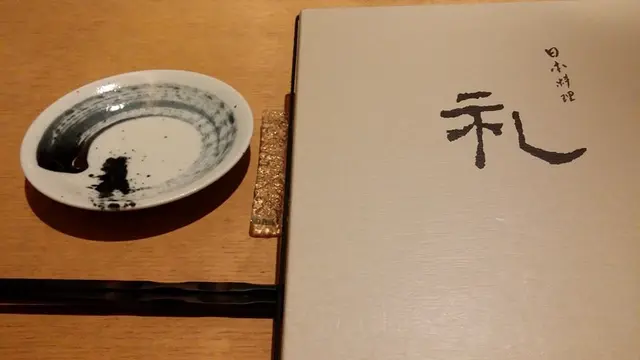 日本料理
礼